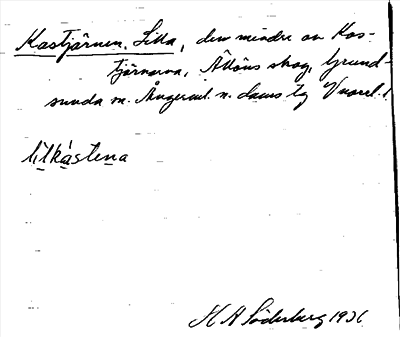 Kastjärnen, Lilla, den mindre av Kas-
tjärnarna, Ällöns skog, Grund-
sunda sn. Ångerml. n. doms tg Vnorrl. l.
lı̀lkástena
H A Söderberg 1936